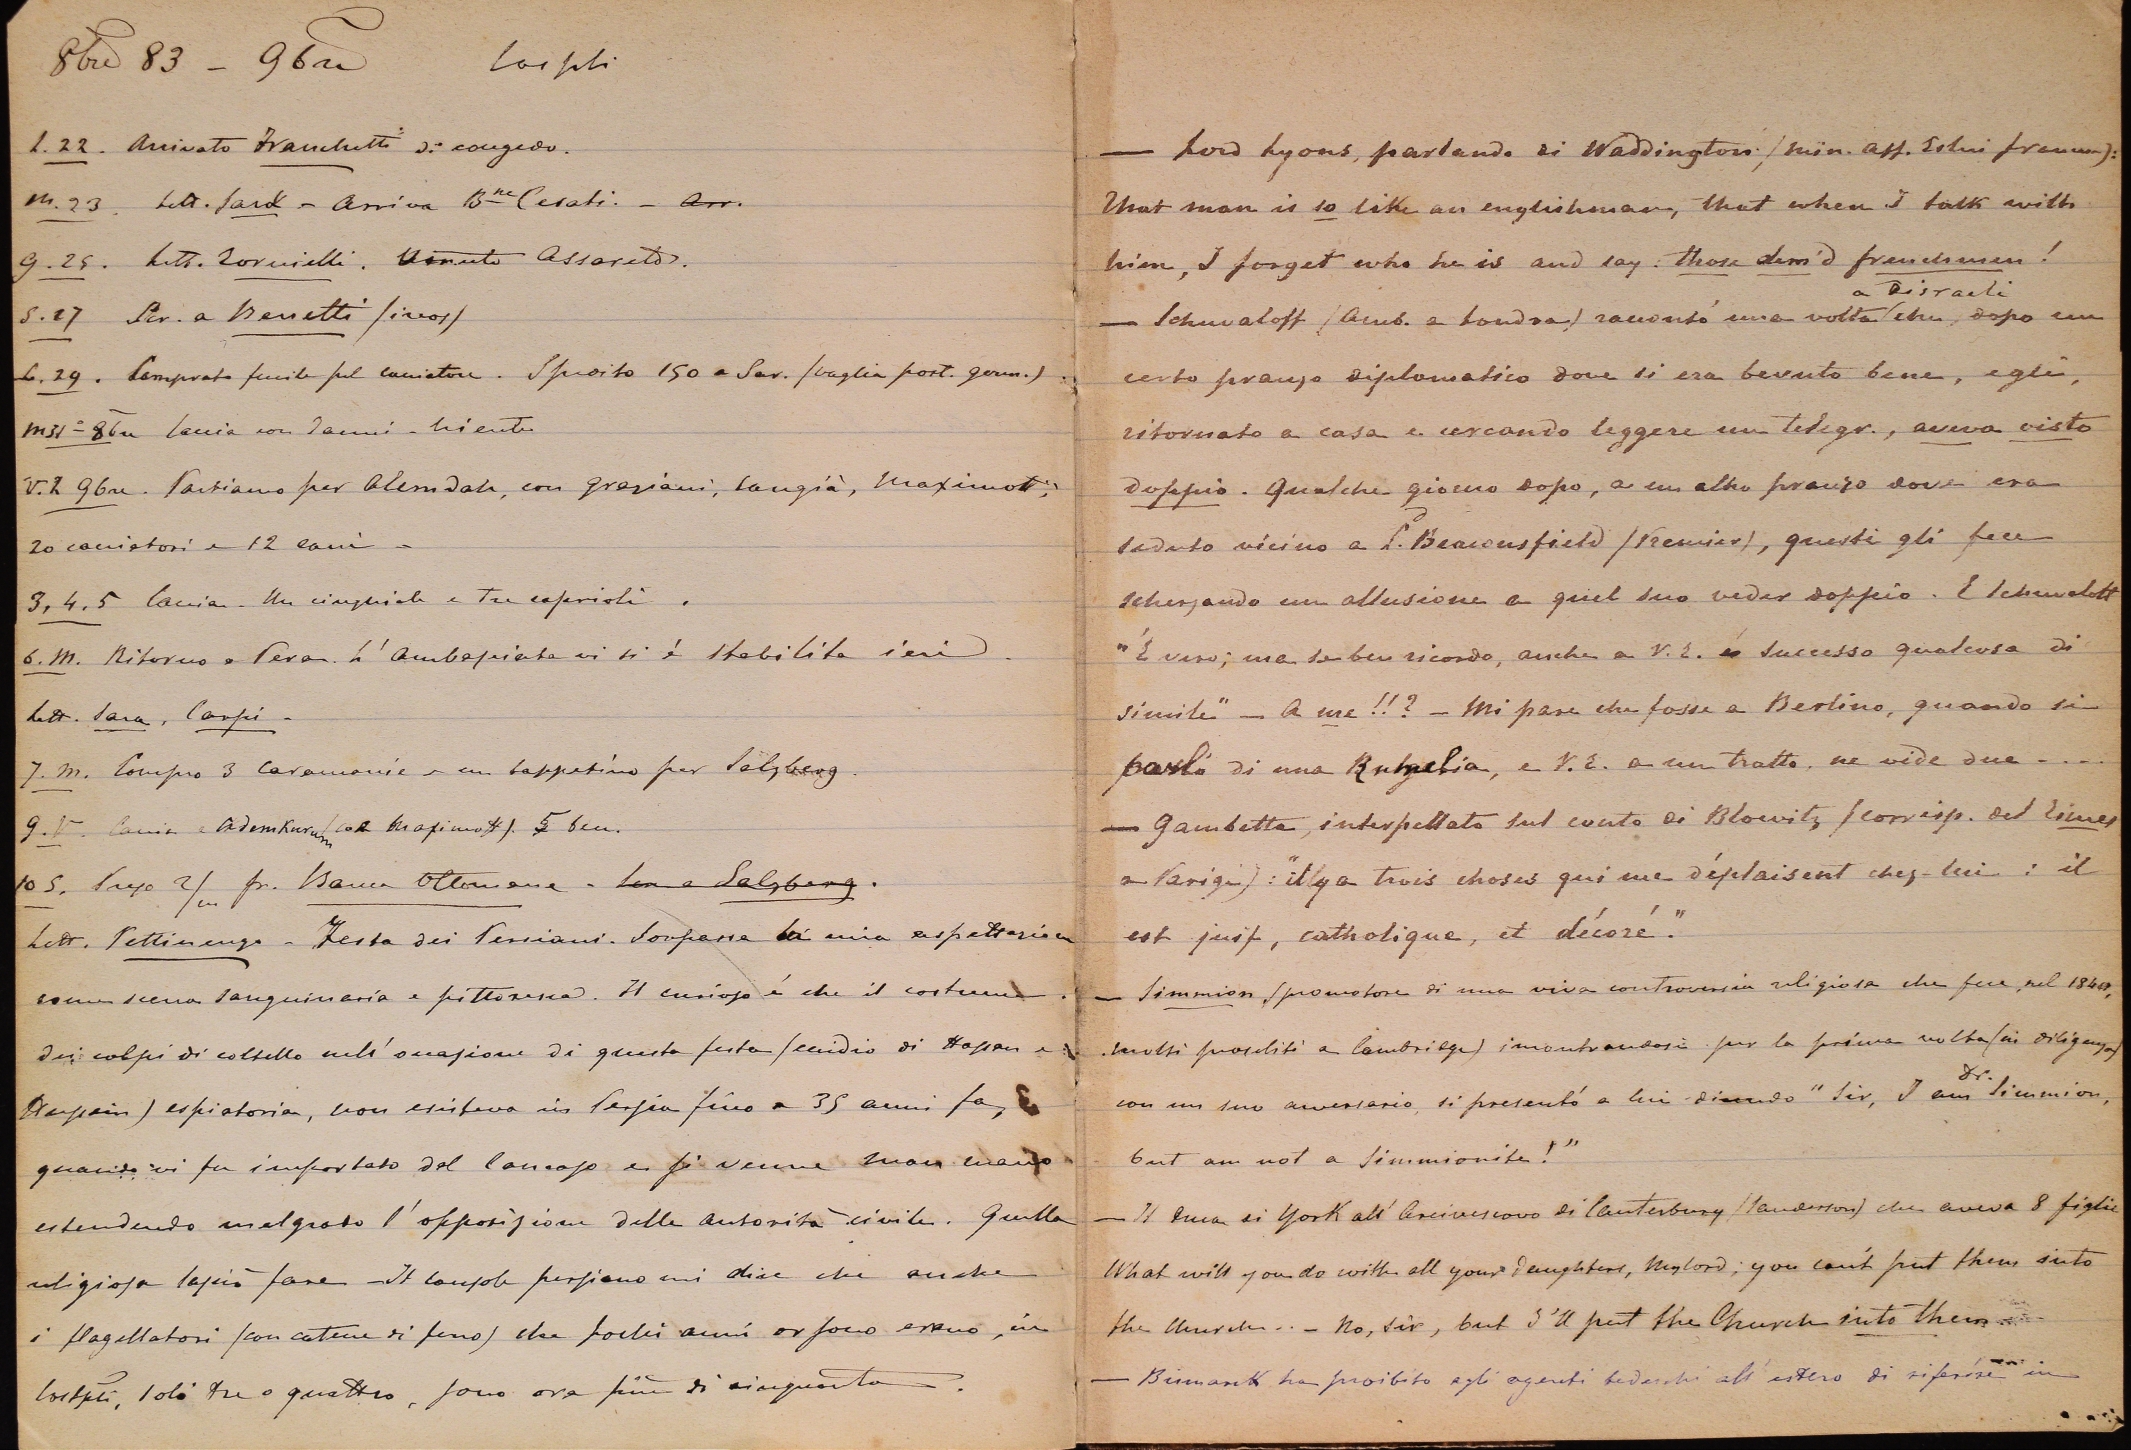 8bre 83 – 9bre Cospli
L. 22. Arrivato Franchetti di congedo.
M. 23. Lett. Sara – Arriva Bne Cesati. – Arr.
G. 25. Lett. Tornielli. Venuto Assareto.
S. 27 Scr. a Benetti
L. 29. Comprato fucile pel cacciatore. Spedito 150 a Sar. (vaglia post. germ.)
M 31 = 8bre Caccia con Danni – Niente
V. 2 9bre. Partiamo per Alemdah, con Graziani, Cangià, Maximoff,
20 cacciatori e 12 cani –
3, 4, 5 Caccia – Un cinghiale e tre caprioli.
6. M. Ritorno a Pera. L'Ambasciata vi si è stabilita ieri.
Lett. Sara, Carpi –
7. M. Compro 3 Caramanie e un tappetino per Salzberg.
9. V. Caccia a Ademkurum (con Maximoff). 5 bec.
10 S. Preso 2/m fr. Banca Ottomana – Scr. a Salzberg.
Lett. Pettinengo – Festa dei Persiani. Sorpassa la mia aspettazione
come scena sanguinaria e pittoresca. Il curioso è che il costume
dei colpi di coltello nell'occasione di questa festa (eccidio di Hassan e
Hussein) espiatoria, non esisteva in Persia fino a 35 anni fa,
quando vi fu importato dal Caucaso e si venne man mano
estendendo malgrado l'opposizione delle autorità civile. Quella
religiosa lasciò fare – Il console persiano mi dice che anche
i flagellatori (con catene di ferro) che pochi anni or sono erano, in
Costpli, solo tre o quattro, sono ora più di cinquanta.
— Lord Lyons, parlando di Waddington (min. aff. Esteri francese):
That man is so like an englishman, that when I talk with
him, I forget who he is and say: those dem'd frenchmen!
— Schuvaloff (Amb. a Londra) raccontò una volta a Disraeli che, dopo un
certo pranzo diplomatico dove si era bevuto bene, egli,
ritornato a casa e cercando leggere un telegr., aveva visto
doppio. Qualche giorno dopo, a un altro pranzo dove era
seduto vicino a Ld. Beaconsfield (Premier), questi gli fece
scherzando un allusione a quel suo veder doppio. E Schuvaloff
"È vero; ma se ben ricordo, anche a V. E. è successo qualcosa di
simile" – A me!!? – Mi pare che fosse a Berlino, quando si
parlò di una Rumelia, e V. E. a un tratto ne vide due ....
— Gambetta, interpellato sul conto di Blowitz (corrisp. del Times
a Parigi): "il y a trois choses qui me déplaisent chez-lui: il
est juif, catholique, et décoré."
— Simmion (promotore di una viva controversia religiosa che fece, nel
molti proseliti a Cambridge) incontrandosi per la prima volta (in diligenza)
con un suo avversario, si presentò a lui dicendo "Sir, I am Dr. Simmion,
but am not a Simmionite!"
— Il Duca di York all'Arcivescovo di Canterbury che aveva 8 figlie
What will you do with all your daughters, Mylord; you can't put them into
the Church.. – No, sir, but I'll put the Church into them
— Bismarck ha proibito agli agenti tedeschi all'estero di riferire in